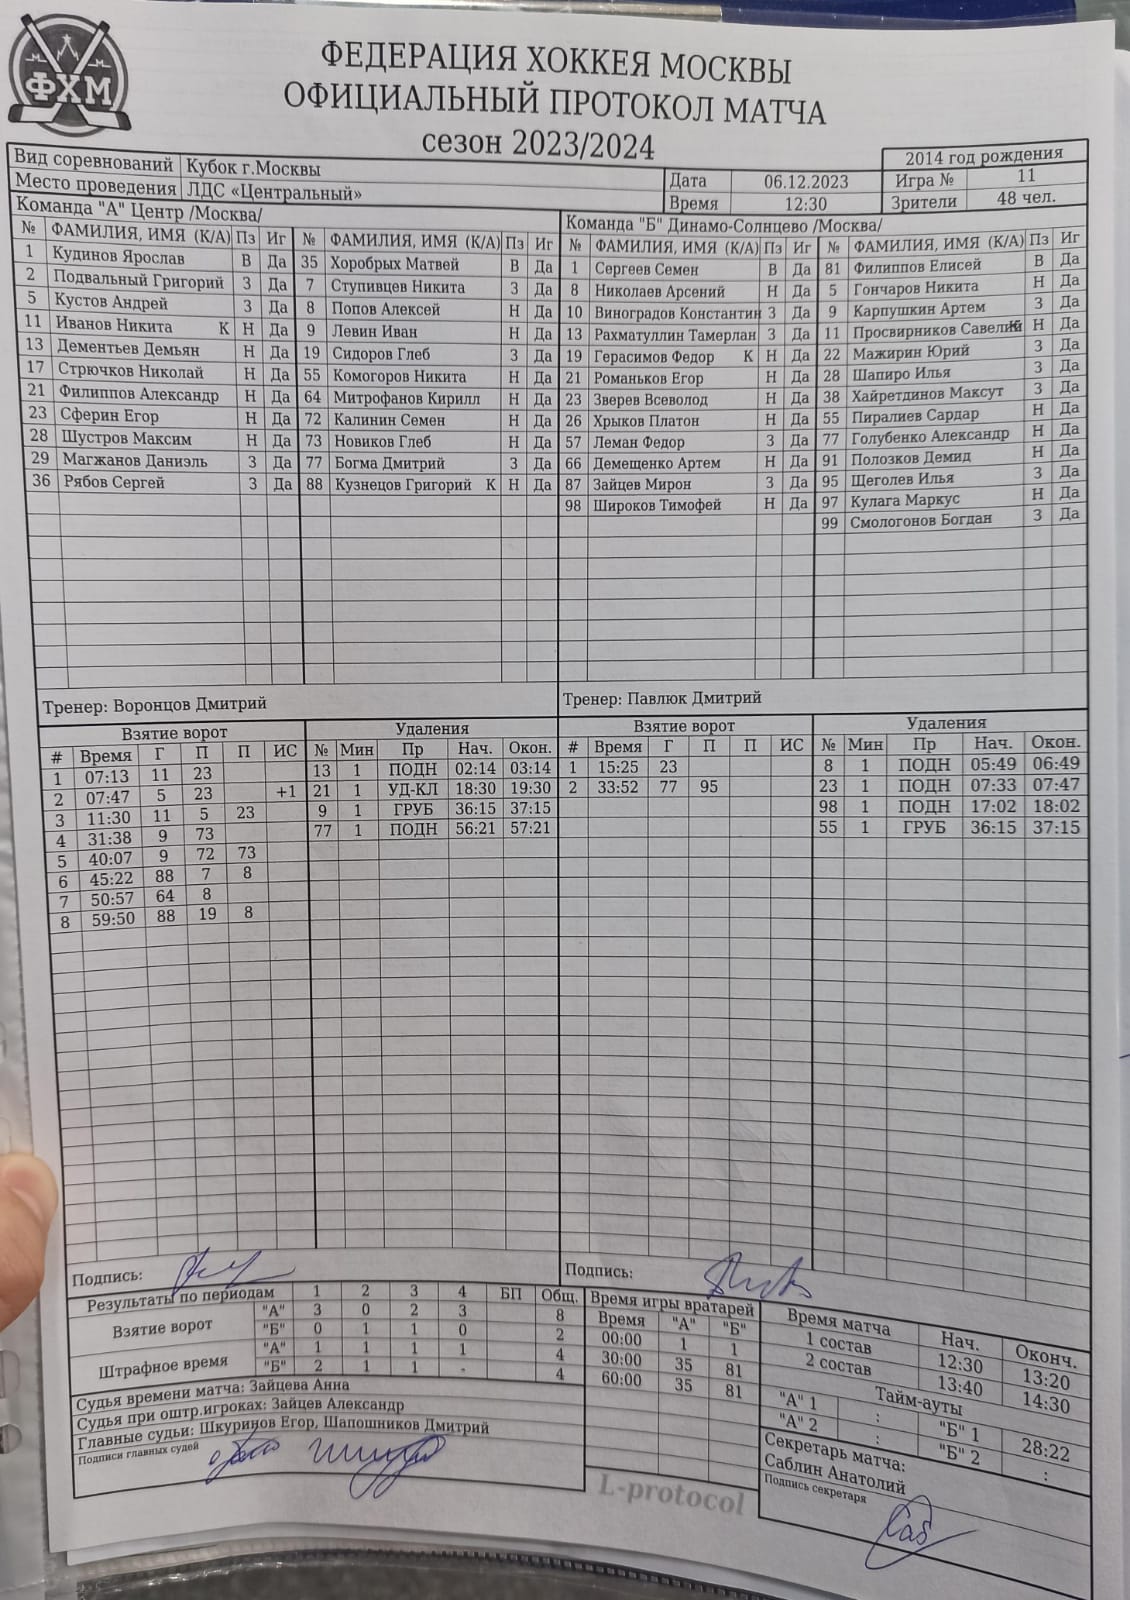 ФХМ
ФЕДЕРАЦИЯ ХОККЕЯ МОСКВЫ
ОФИЦИАЛЬНЫЙ ПРОТОКОЛ МАТЧА
сезон 2023/2024
2014 год рождения
Вид соревнований Кубок г.Москвы Дата 06.12.2023 Игра № 11
Место проведения ЛДС «Центральный» Время 12:30 Зрители 48 чел.
Команда "А" Центр /Москва/ Команда "Б" Динамо-Солнцево /Москва/
№ ФАМИЛИЯ, ИМЯ (К/А) Пз Иг № ФАМИЛИЯ, ИМЯ (К/А) Пз Иг № ФАМИЛИЯ, ИМЯ (К/А) Пз Иг № ФАМИЛИЯ, ИМЯ (К/А) Пз Иг
1 Кудинов Ярослав В Да 35 Хоробрых Матвей В Да 1 Сергеев Семен В Да 81 Филиппов Елисей В Да
2 Подвальный Григорий З Да 7 Ступивцев Никита З Да 8 Николаев Арсений Н Да 5 Гончаров Никита Н Да
5 Кустов Андрей З Да 8 Попов Алексей Н Да 10 Виноградов Константин З Да 9 Карпушкин Артем З Да
11 Иванов Никита К Н Да 9 Левин Иван Н Да 13 Рахматуллин Тамерлан З Да 11 Просвирников Савелий К Н Да
13 Дементьев Демьян Н Да 19 Сидоров Глеб З Да 19 Герасимов Федор К Н Да 22 Мажирин Юрий З Да
17 Стрючков Николай Н Да 55 Комогоров Никита Н Да 21 Романьков Егор Н Да 28 Шапиро Илья З Да
21 Филиппов Александр Н Да 64 Митрофанов Кирилл Н Да 23 Зверев Всеволод Н Да 38 Хайретдинов Максут З Да
23 Сферин Егор Н Да 72 Калинин Семен Н Да 26 Хрыков Платон Н Да 55 Пиралиев Сардар Н Да
28 Шустров Максим Н Да 73 Новиков Глеб Н Да 57 Леман Федор З Да 77 Голубенко Александр Н Да
29 Магжанов Даниэль З Да 77 Богма Дмитрий З Да 66 Демещенко Артем Н Да 91 Полозков Демид Н Да
36 Рябов Сергей З Да 88 Кузнецов Григорий К Н Да 87 Зайцев Мирон З Да 95 Щеголев Илья З Да
98 Широков Тимофей Н Да 97 Кулага Маркус Н Да
99 Смологонов Богдан З Да
Тренер: Воронцов Дмитрий Тренер: Павлюк Дмитрий
Взятие ворот Удаления Взятие ворот Удаления
# Время Г П П ИС № Мин Пр Нач. Окон. # Время Г П П ИС № Мин Пр Нач. Окон.
1 07:13 11 23 13 1 ПОДН 02:14 03:14 1 15:25 23 8 1 ПОДН 05:49 06:49
2 07:47 5 23 +1 21 1 УД-КЛ 18:30 19:30 2 33:52 77 95 23 1 ПОДН 07:33 07:47
3 11:30 11 5 23 9 1 ГРУБ 36:15 37:15 98 1 ПОДН 17:02 18:02
4 31:38 9 73 77 1 ПОДН 56:21 57:21 55 1 ГРУБ 36:15 37:15
5 40:07 9 72 73
6 45:22 88 7 8
7 50:57 64 8
8 59:50 88 19 8
Подпись: Подпись:
Результаты по периодам 1 2 3 4 БП Общ.
Взятие ворот "А" 3 0 2 3 8
"Б" 0 1 1 0 2
Штрафное время "А" 1 1 1 1 4
"Б" 2 1 1 - 4
Судья времени матча: Зайцева Анна
Судья при оштр.игроках: Зайцев Александр
Главные судьи: Шкуринов Егор, Шапошников Дмитрий
Подписи главных судей
Время игры вратарей
Время "А" "Б"
00:00 1 1
30:00 35 81
60:00 35 81
L-protocol
Время матча Нач. Оконч.
1 состав 12:30 13:20
2 состав 13:40 14:30
Тайм-ауты
"А" 1 : "Б" 1 28:22
"А" 2 : "Б" 2 :
Секретарь матча:
Саблин Анатолий
Подпись секретаря
Саб